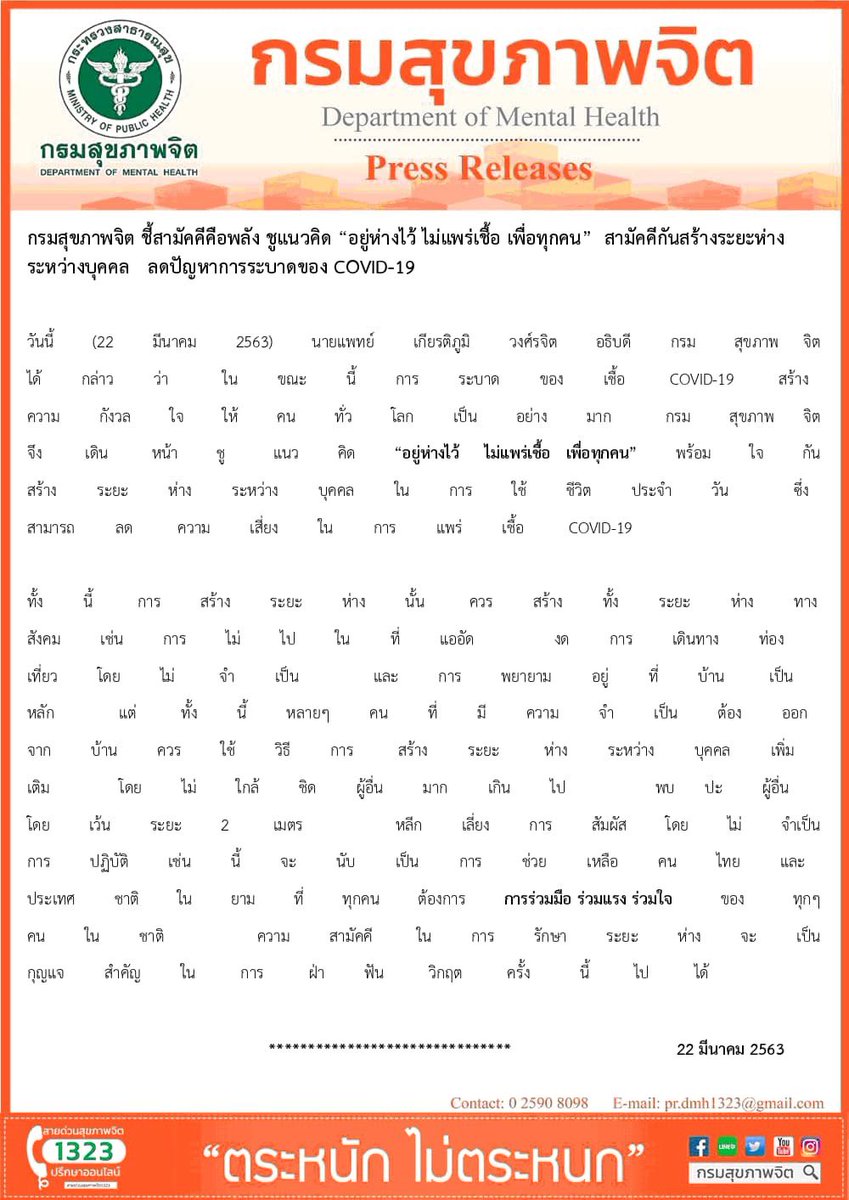 กระทรวงสาธารณสุข
MINISTRY OF PUBLIC HEALTH
กรมสุขภาพจิต
DEPARTMENT OF MENTAL HEALTH
กรมสุขภาพจิต
Department of Mental Health
Press Releases
กรมสุขภาพจิต ชี้สามัคคีคือพลัง ชูแนวคิด “อยู่ห่างไว้ ไม่แพร่เชื้อ เพื่อทุกคน” สามัคคีกันสร้างระยะห่าง
ระหว่างบุคคล ลดปัญหาการระบาดของ COVID-19
วันนี้ (22 มีนาคม 2563) นายแพทย์ เกียรติภูมิ วงศ์รจิต อธิบดี กรม สุขภาพ จิต
ได้ กล่าว ว่า ใน ขณะ นี้ การ ระบาด ของ เชื้อ COVID-19 สร้าง
ความ กังวล ใจ ให้ คน ทั่ว โลก เป็น อย่าง มาก กรม สุขภาพ จิต
จึง เดิน หน้า ชู แนว คิด “อยู่ห่างไว้ ไม่แพร่เชื้อ เพื่อทุกคน” พร้อม ใจ กัน
สร้าง ระยะ ห่าง ระหว่าง บุคคล ใน การ ใช้ ชีวิต ประจำ วัน ซึ่ง
สามารถ ลด ความ เสี่ยง ใน การ แพร่ เชื้อ COVID-19
ทั้ง นี้ การ สร้าง ระยะ ห่าง นั้น ควร สร้าง ทั้ง ระยะ ห่าง ทาง
สังคม เช่น การ ไม่ ไป ใน ที่ แออัด งด การ เดินทาง ท่อง
เที่ยว โดย ไม่ จำ เป็น และ การ พยายาม อยู่ ที่ บ้าน เป็น
หลัก แต่ ทั้ง นี้ หลายๆ คน ที่ มี ความ จำ เป็น ต้อง ออก
จาก บ้าน ควร ใช้ วิธี การ สร้าง ระยะ ห่าง ระหว่าง บุคคล เพิ่ม
เติม โดย ไม่ ใกล้ ชิด ผู้อื่น มาก เกิน ไป พบ ปะ ผู้อื่น
โดย เว้น ระยะ 2 เมตร หลีก เลี่ยง การ สัมผัส โดย ไม่ จำเป็น
การ ปฏิบัติ เช่น นี้ จะ นับ เป็น การ ช่วย เหลือ คน ไทย และ
ประเทศ ชาติ ใน ยาม ที่ ทุกคน ต้องการ การร่วมมือ ร่วมแรง ร่วมใจ ของ ทุกๆ
คน ใน ชาติ ความ สามัคคี ใน การ รักษา ระยะ ห่าง จะ เป็น
กุญแจ สำคัญ ใน การ ฝ่า ฟัน วิกฤต ครั้ง นี้ ไป ได้
******************************* 22 มีนาคม 2563
Contact: 0 2590 8098 E-mail: pr.dmh1323@gmail.com
สายด่วนสุขภาพจิต
1323
ปรึกษาออนไลน์
“ตระหนัก ไม่ตระหนก”
LINE@
You Tube
กรมสุขภาพจิต